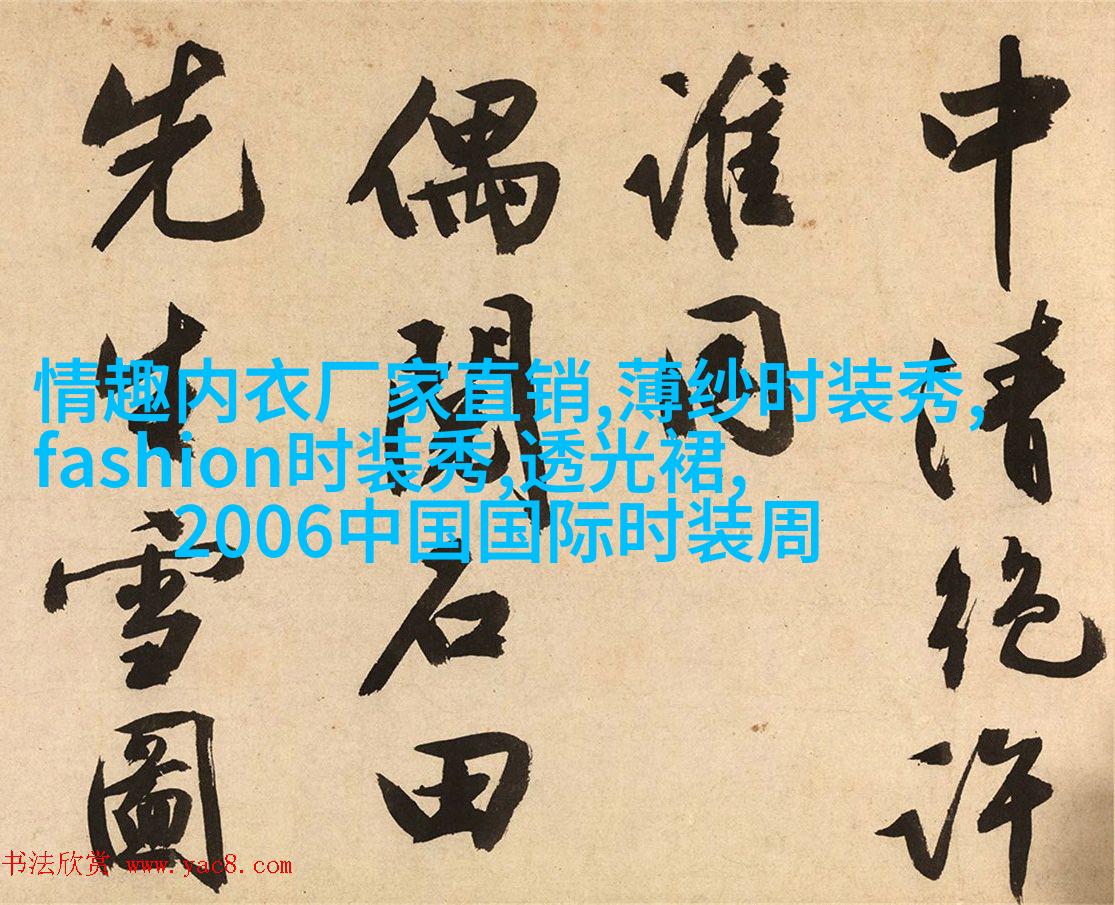 中清絶許
誰同
偶閱石田
先生雪圖
情趣内衣厂家直销,薄纱时装秀,
fashion时装秀,透光裙,
2006中国国际时装周
书法欣赏 www.yac8.com